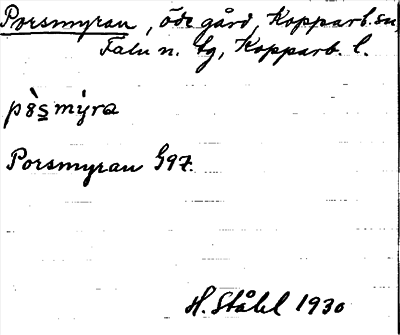 Porsmyran, öde gård, Kopparb. sn,
Falu n. tg, Kopparb. l.
pòs̲mýra
Porsmyran G97.
H. Ståhl 1930